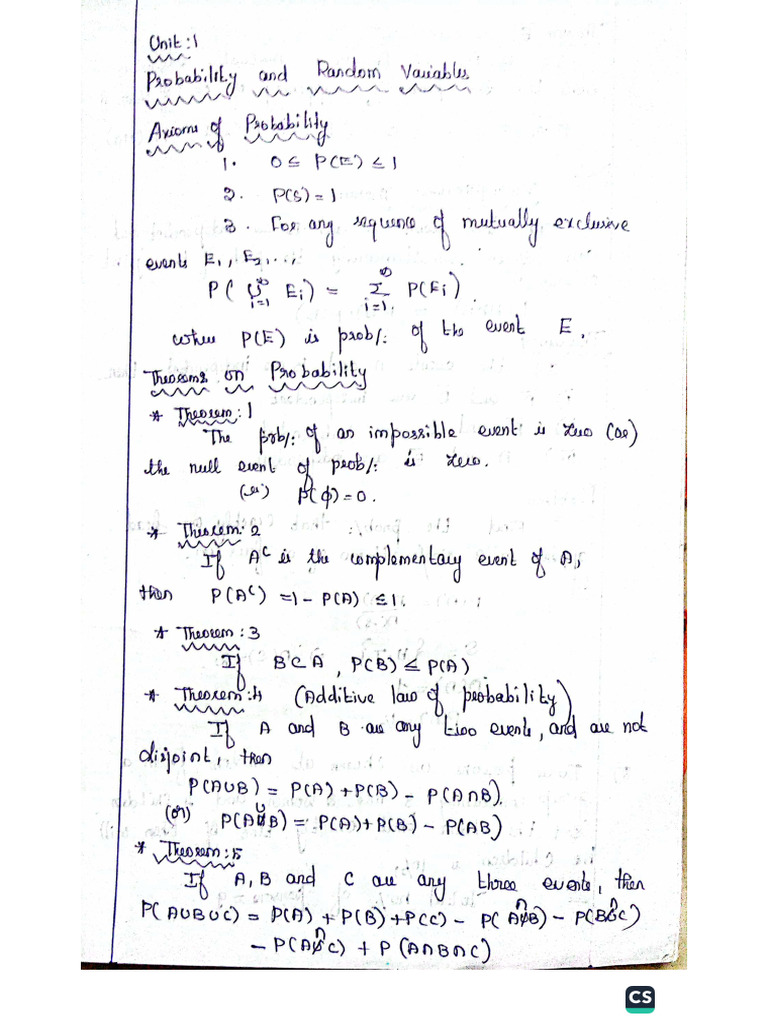 Unit:1
Probability and Random Variables
Axioms of Probability
1. 0 ≤ P(E) ≤ 1
2. P(S) = 1
3. For any sequence of mutually exclusive
events E₁, E₂, ...,
P( ∪_{i=1}^{∞} Eᵢ) = Σ_{i=1}^{∞} P(Eᵢ)
where P(E) is prob/: of the event E.
Theorems on Probability
* Theorem:1
The prob/: of an impossible event is zero (or)
the null event of prob/: is zero.
(ie) P(ϕ) = 0.
* Theorem:2
If Aᶜ is the complementary event of A,
then P(Aᶜ) = 1 - P(A) ≤ 1.
* Theorem:3
If B⊂A, P(B) ≤ P(A)
* Theorem:4 (Additive law of probability)
If A and B are any two events, and are not
disjoint, then
P(A∪B) = P(A) + P(B) - P(A∩B).
(or) P(A∪B) = P(A) + P(B) - P(AB)
* Theorem:5
If A, B and C are any three events, then
P(A∪B∪C) = P(A) + P(B) + P(C) - P(A∩B) - P(B∩C)
- P(A∩C) + P(A∩B∩C)
CS